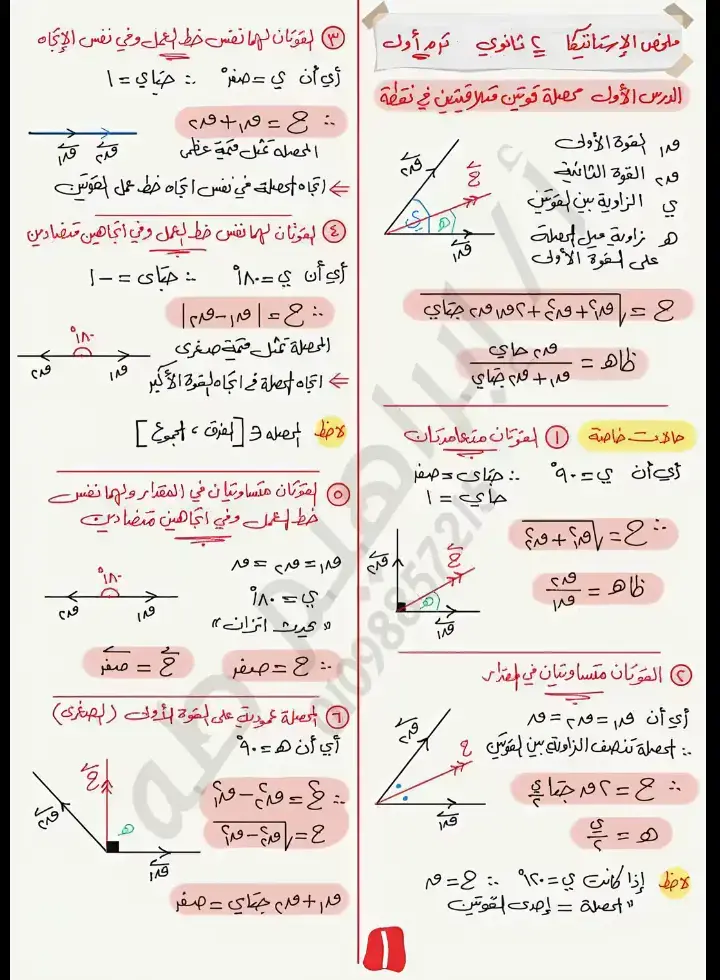 ملخص الإستاتيكا ٢ ثانوي ترم أول
الدرس الأول محصلة قوتين متلاقيتين في نقطة
ق١ القوة الأولى
ق٢ القوة الثانية
ي الزاوية بين القوتين
هـ زاوية ميل المحصلة
على القوة الأولى
ق٢
ح
ي
هـ
ق١
ح = √(ق١² + ق٢² + ٢ق١ق٢ جتاي)
ظاهـ = ق٢ جاي / (ق١ + ق٢ جتاي)
حالات خاصة ١ القوتان متعامدتان
أي أن ي = ٩٠° ∴ جتاى = صفر
جاي = ١
∴ ح = √(ق١² + ق٢²)
ظاهـ = ق٢ / ق١
ق٢
ح
هـ
ق١
٢ القوتان متساويتان في المقدار
أي أن ق١ = ق٢ = ق
∴ المحصلة تنصف الزاوية بين القوتين
∴ ح = ٢ق جتا ي/٢
هـ = ي/٢
ق٢
ح
ق١
لاحظ إذا كانت ي = ١٢٠° ∴ ح = ق
"المحصلة = إحدى القوتين"
٣ القوتان لهما نفس خط العمل وفي نفس الإتجاه
أي أن ي = صفر° ∴ جتاي = ١
∴ ح = ق١ + ق٢
المحصلة تمثل قيمة عظمى
ق١ ق٢
⇐ اتجاه المحصلة في نفس اتجاه خط عمل القوتين
٤ القوتان لهما نفس خط العمل وفي اتجاهين متضادين
أي أن ي = ١٨٠° ∴ جتاى = -١
∴ ح = |ق١ - ق٢|
المحصلة تمثل قيمة صغرى
١٨٠°
ق٢ ق١
⇐ اتجاه المحصلة في اتجاه القوة الأكبر
لاحظ المحصلة ∋ [الفرق ، المجموع]
٥ القوتان متساويتان في المقدار ولهما نفس
خط العمل وفي اتجاهين متضادين
ق١ = ق٢ = ق
ي = ١٨٠°
"يحدث اتزان"
١٨٠°
ق٢ ق١
∴ ح = صفر ح = صفر
٦ المحصلة عمودية على القوة الأولى (الصغرى)
أي أن هـ = ٩٠°
∴ ح² = ق٢² - ق١²
ح = √(ق٢² - ق١²)
ق١ + ق٢ جتاي = صفر
ح
ق٢
هـ
ق١
١